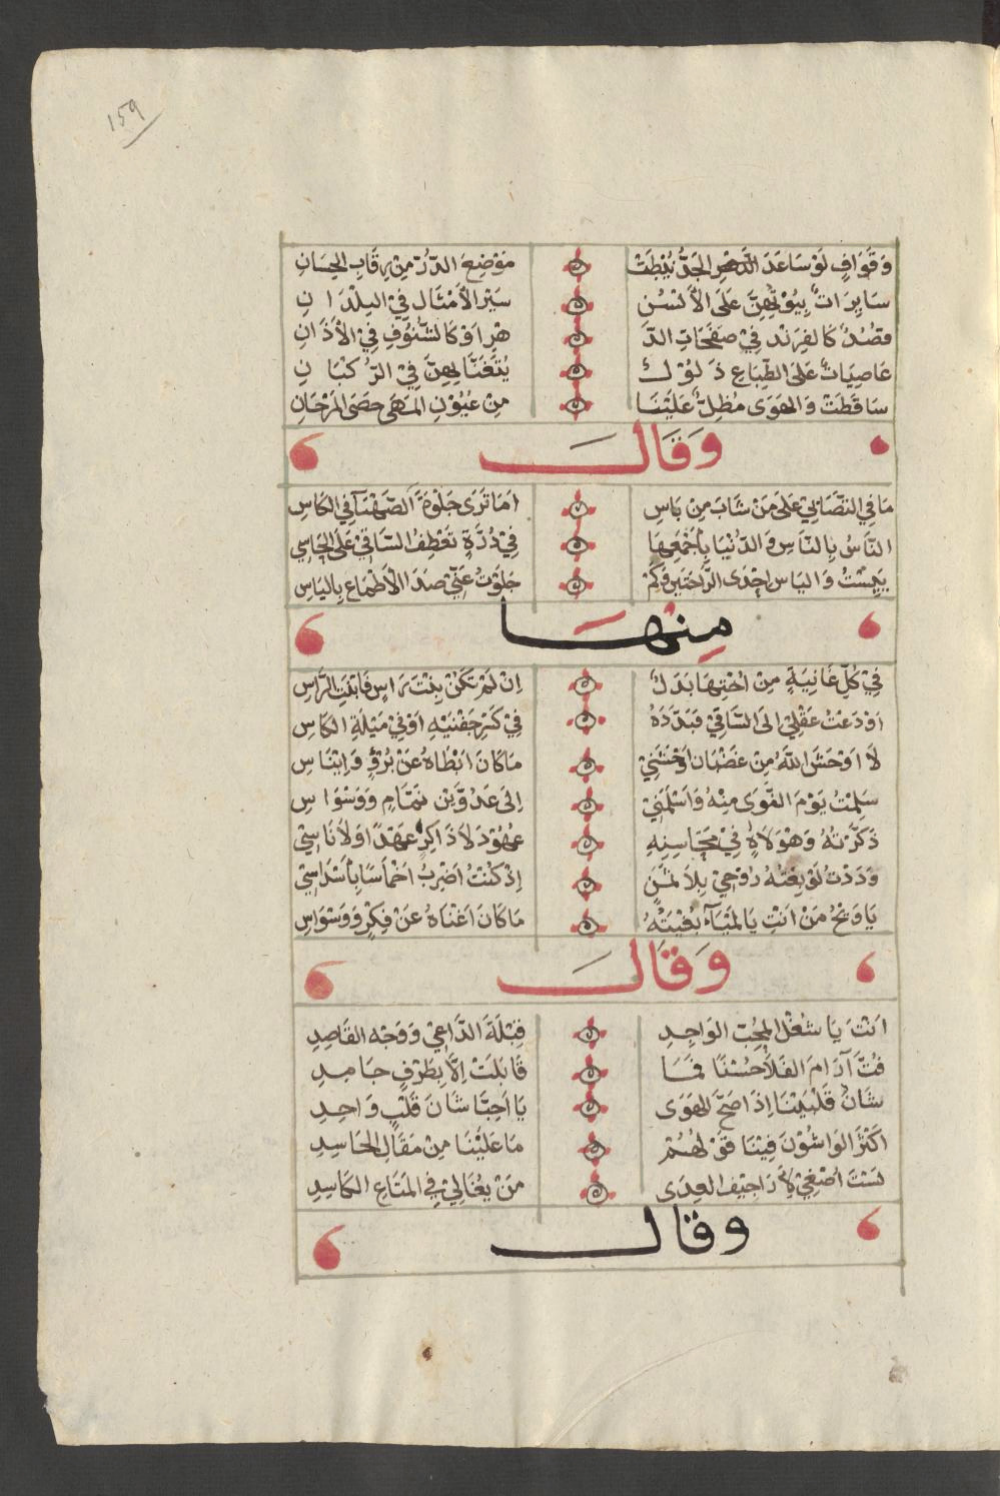 159
وَقَوَافٍ لَوْ سَاعَدَ الدَّهْرِ الجَدُّ نِيْطَتْ مَوْضِعَ الدُّرِّ مِنْ رِقَابِ الحِسَانِ
سَايِرَاتٌ بِيُوْتُهِنَّ عَلَى الأَلْسُنِ سَيْرَ الأَمْثَالِ فِيْ البِلْدَانِ
فصُدٌ كَالفِرَنْدِ فِيْ صَفَحَاتِ الدَّ هْرِ اوْ كَالشُّنُوْفِ فِيْ الأَذَانِ
عَاصِيَاتٌ عَلَى الطِّبَاعِ ذَلُوْلٌ يُتَغَنَّا بِهِنَّ فِيْ الرُّكْبَانِ
سَاقَطَتْ وَالهَوَى مُظِلٌّ عَلَيْنَا مِنْ عُيُوْنِ المَهَى حصَى المَرْجَانِ
وَقَالَ
مَا فِي التَّصَابِيْ عَلَى مَنْ شَابَ مِنْ بَاسِ امَا تَرَى جَلْوَةَ الصَّهْبَآ فِي الكَاسِ
النَّاسُ بِالنَّاسِ وَالدُّنْيَا بِأَجْمَعِهَا فِيْ دُرَّةٍ تَعْطِفُ السَّاقِيْ عَلَى الحَاسِي
يَيِسْتُ وَاليَاسِ اِحْدَى الرَّاحَتَيْنِ وَكَمْ جَلَوْتُ عَنِّيْ صَدَ الأَطْمَاعِ بِاليَاسِ
مِنهَا
فِيْ كُلِّ غَانِيَةٍ مِنْ اخْتِهَا بَدَلٌ اِنْ لَمْ تَكُنْ بِنْتَ رَاسٍ فَابْنَتِ الرَّاسِ
اوْدَعْتُ عَقْلِيْ الَى السَّاقِيْ فَبَدَّدَهُ فِيْ كَسْرِ جَفْنَيْهِ اوْ فِيْ مَيْلَةِ الكَاسِ
لَا اوْحَشَ اللهُ مِنْ غَضْبَانَ اوْحَشَنِيْ مَا كَانَ ابْطَاهُ عَنْ بُرْئِ وَاِيْنَاسِ
سَلِمْتُ يَوْمَ النَّوَى مِنْهُ وَاسْلَمَنِيْ اِلَى عَدُوَّيْنِ نَمَّامٍ وَوَسْوَاسِ
ذَكَّرْتُهُ وَهْوَ لَاهٍ فِيْ مَحَاسِنِهِ عُهُوْدَ لَا ذَاكِرٍ عَهْدًا وَلَا نَاسِيْ
وَدَدْتُ لَوْ بِعْتُهُ رُوْحِيْ بِلَا ثَمَنٍ اِذْ كُنْتُ اضْرِبُ اخْمَاسًا بِأَسْدَاسِيْ
يَا وَيْحُ مَنْ انْتِ يَا لَمْيَآءُ بُغْيَتُهُ مَا كَانَ اغْنَاهُ عَنْ فِكْرٍ وَوَسْوَاسِ
وَقَالَ
انْتَ يَا شُغْلَ المُحِبِّ الوَاجِدِ قِبْلَةَ الدَّاعِيْ وَوَجْهَ القَاصِدِ
فُتَّ آرَامَ الفَلَا حُسْنًا فَمَا قَابَلَتْ اِلَّا بِطَرْفٍ جَامِدِ
شَانُ قَلْبَيْنَا اِذَا صَحَّ الهَوَى يَا احِبَّا شَانَ قَلْبٍ وَاحِدِ
اكْثَرَ الوَاشُوْنَ فِيْنَا قَوْلَهُمْ مَا عَلَيْنَا مِنْ مَقَالِ الحَاسِدِ
لَسْتَ اُصْغِيْ لِارَاجِيْفِ العِدَى مَنْ يُغَالِيْ فِي المَتَاعِ الكَاسِدِ
وقال